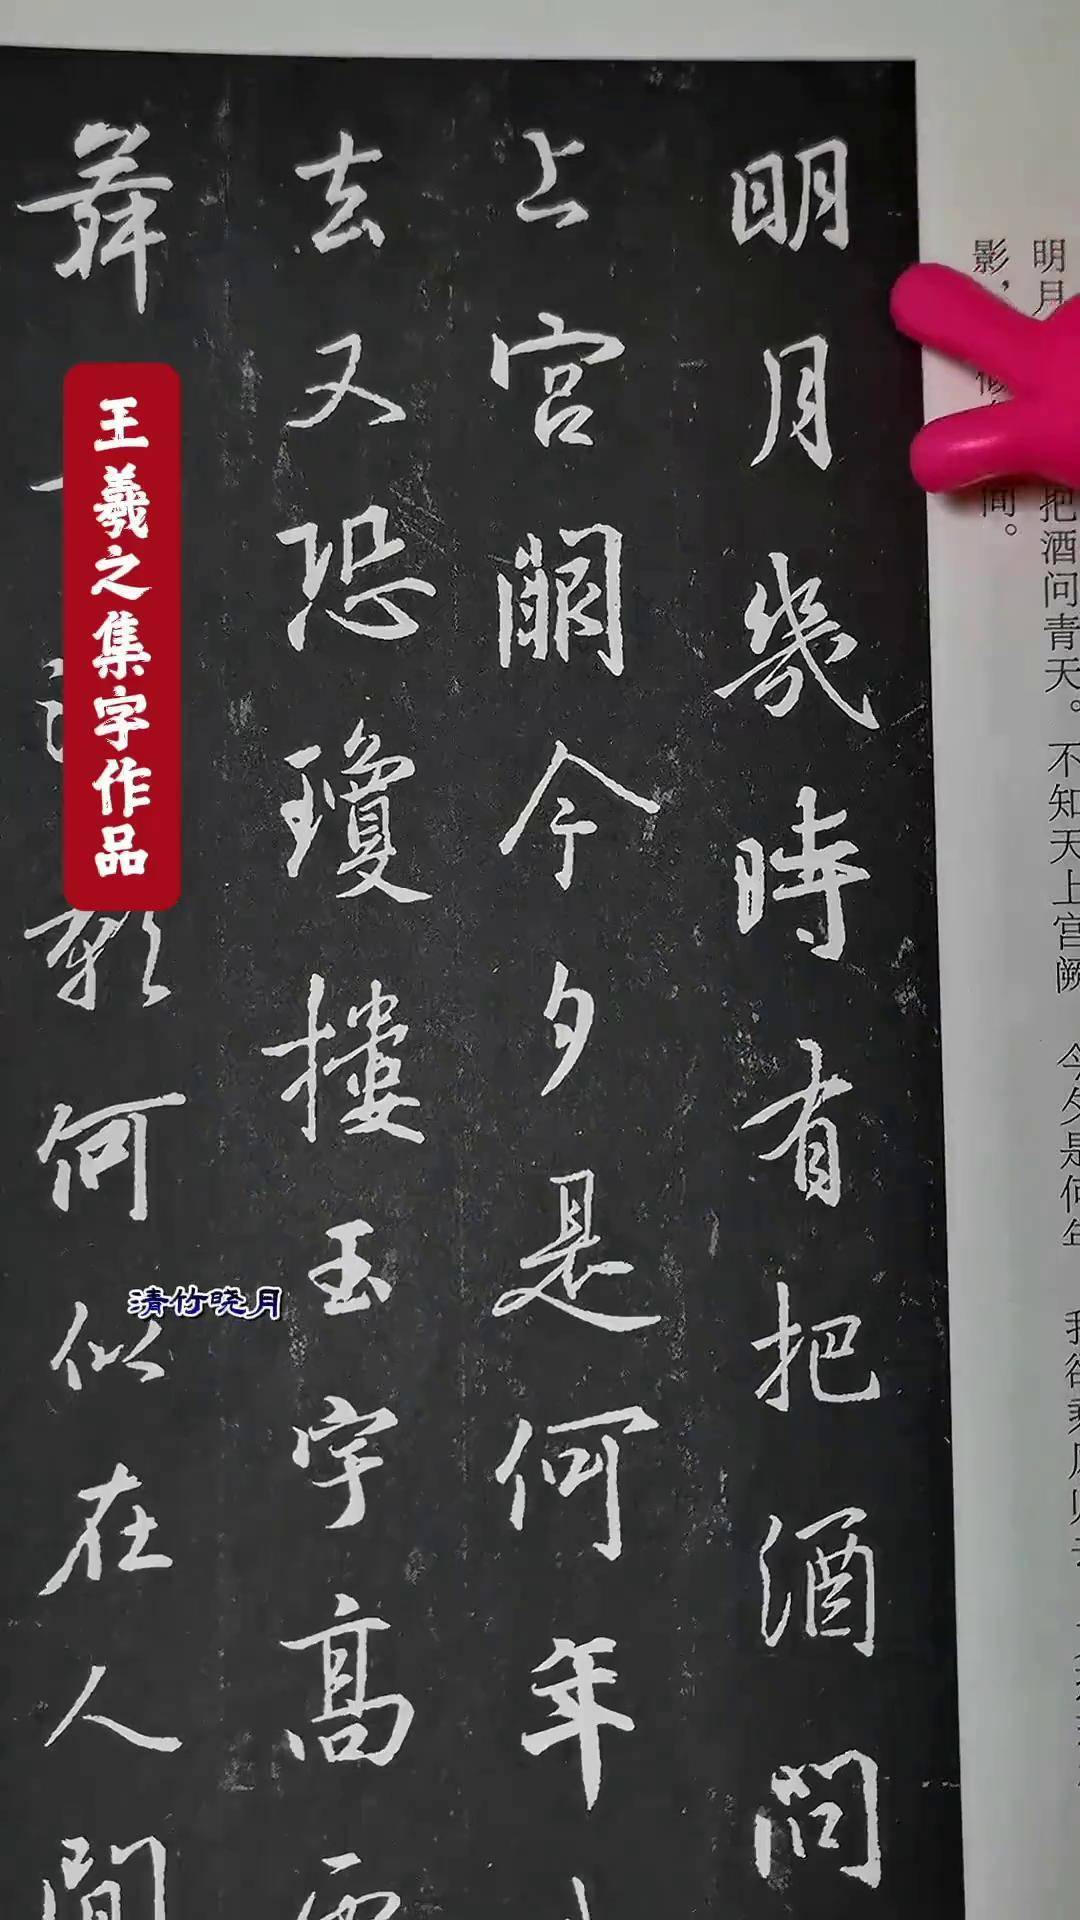 明月幾時有把酒問
上宮闕今夕是何年
去又恐瓊樓玉宇高
舞
影何似在人間
王羲之集字作品
清竹晓月
明月
把酒问青天。不知天上宫阙
今夕是何年
影，
间。